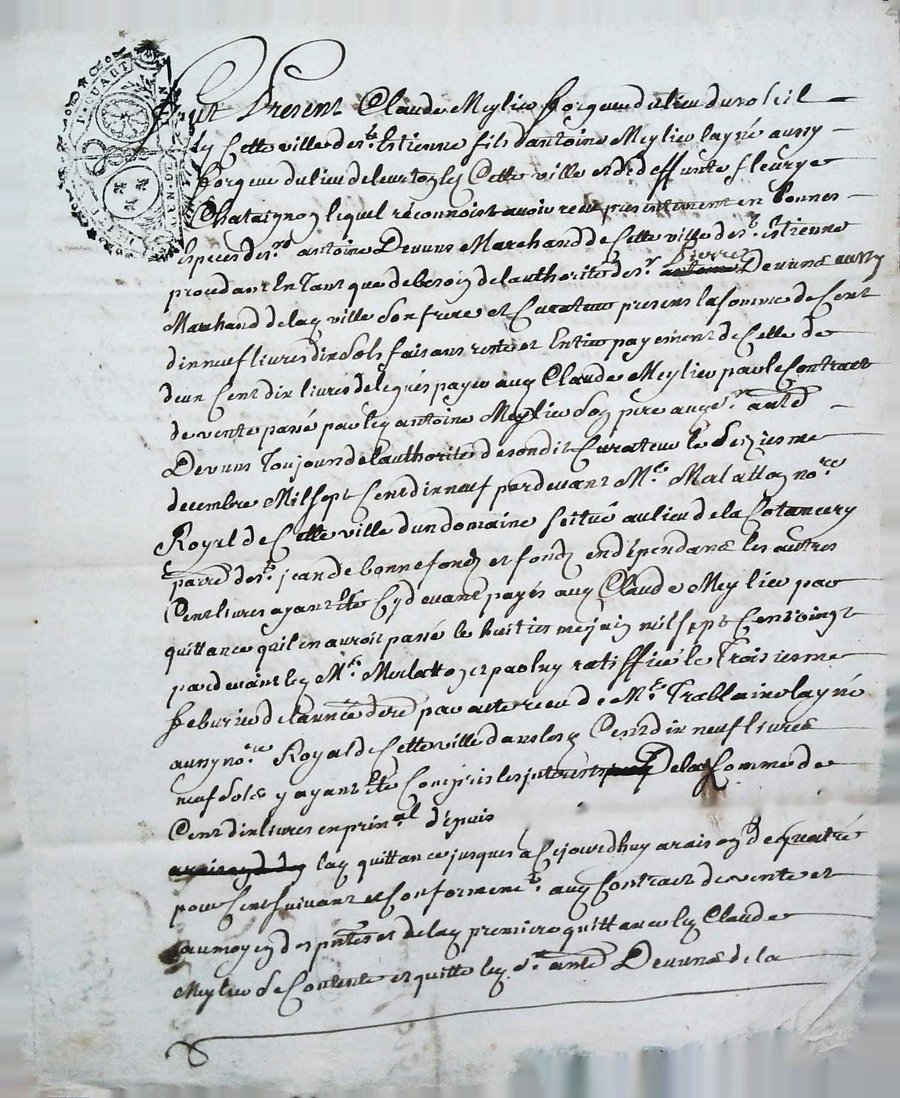 fut Present Claude Meylieu forgeur du lieu du soleil
ley Cette ville de st. Estienne fils d'antoine Meylieu layné aussy
forgeur du lieu de ley Cette ville et de deffunte fleurye
Chataignon lequel reconnoist avoir receu presentement en bonnes
especes de sr. antoine Devuns Marchand de Cette ville de st. Estienne
procedant En Tant que de besoin de l'authorité de sr. Pierre Devuns aussy
Marchand de lad ville son frere et Curateur present la somme de Cent
dixneuf livres dix sols faisant reste et Entier payement de Celle de
deux Cent dix livres deleguée payer aud Claude Meylieu par le Contract
de vente passé par led antoine Meylieu son pere aud sr. anthe
Devuns Toujours de l'authorité de son dit Curateur le seziesme
decembre Mil sept Cent dixneuf pardevant Me. Malatton nore
Royal de Cette ville d'un domaine scitué au lieu de la Cotancery
parre. de st. jean de bonnefond et fonds en dependans les autres
Cent livres ayant esté Cydevant payés aud Claude Meylieu par
quittance qu'il en auroit passé le huitiesme juin mil sept Cent vingt
pardevant led Me. Malatton et par luy ratiffiée le Troisiesme
feburier de l'année dre par acte receu de Me. Trablaine layné
aussy nore Royal de Cette ville dans lesq Cent dix neuf livres
neuf sols y ayant esté Compris les interets de lad Somme de
Cent dix livres en prinal depuis
lad quittance jusques a Cejourdhuy a raison de quatre
pour Cent suivant et Conformement. aud Contract de vente et
au moyen des pntes et de lad premiere quittance led Claude
Meylieu se Contente et quitte led sr. anthe Devuns de la